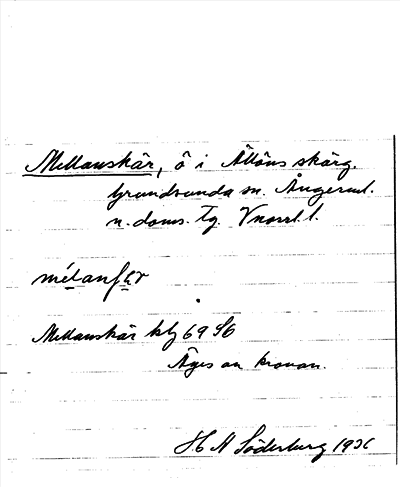 Mellanskär, ö i Ällöns skärg.
Grundsunda sn. Ångerml.
n. doms. tg. Vnorrl. l.
Mellanskär kbl 69 S6
Äges av kronan.
H N Söderberg 1936